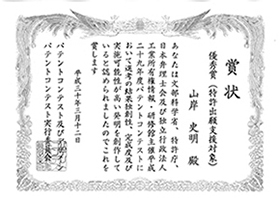 賞状
優秀賞（特許出願支援対象）
山岸 史明 殿
あなたは文部科学省、特許庁、
日本弁理士会及び独立行政法人
工業所有権情報・研修館主催平成
二十九年度パテントコンテストに
おいて選考の結果独創性、完成度及び
実施可能性が高い発明を創作して
いると認められましたのでこれを
賞します
平成三十年三月十二日
パテントコンテスト及び
パテントコンテスト実行委員会